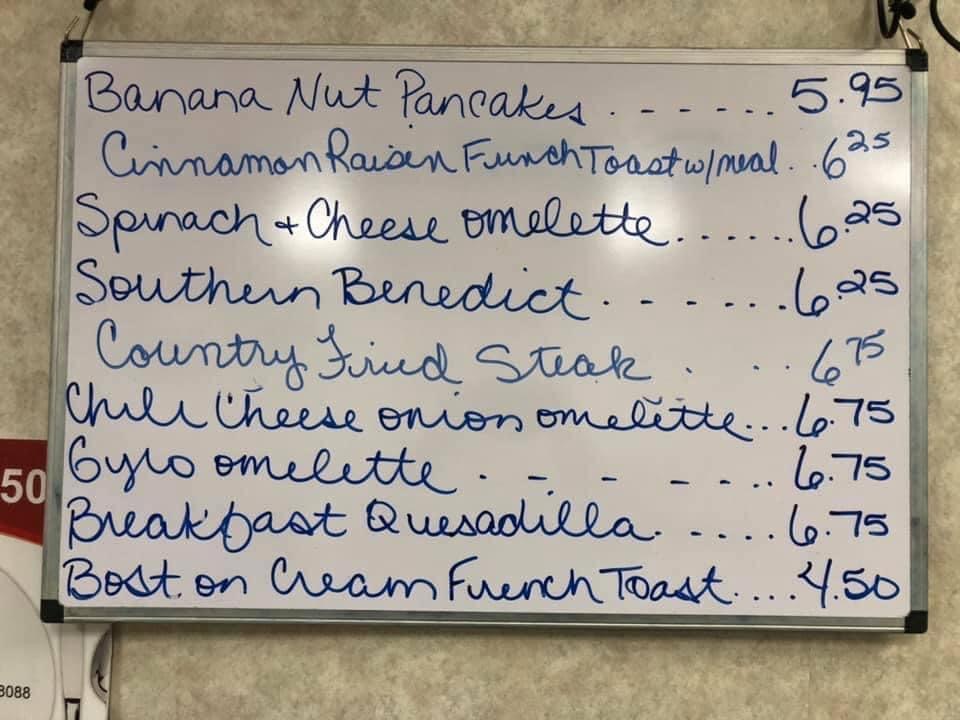 Banana Nut Pancakes . - - - ... 5.95
Cinnamon Raisin French Toast w/meal .. 6 25
Spinach + Cheese omelette ....... 6.25
Southern Benedict . - - - ... 6.25
Country Fried Steak . .. 6 75
Chili Cheese onion omelette... 6.75
Gyro omelette . - - - - .. 6.75
Breakfast Quesadilla. - .... 6.75
Boston Cream French Toast. ... 4.50
50
8088